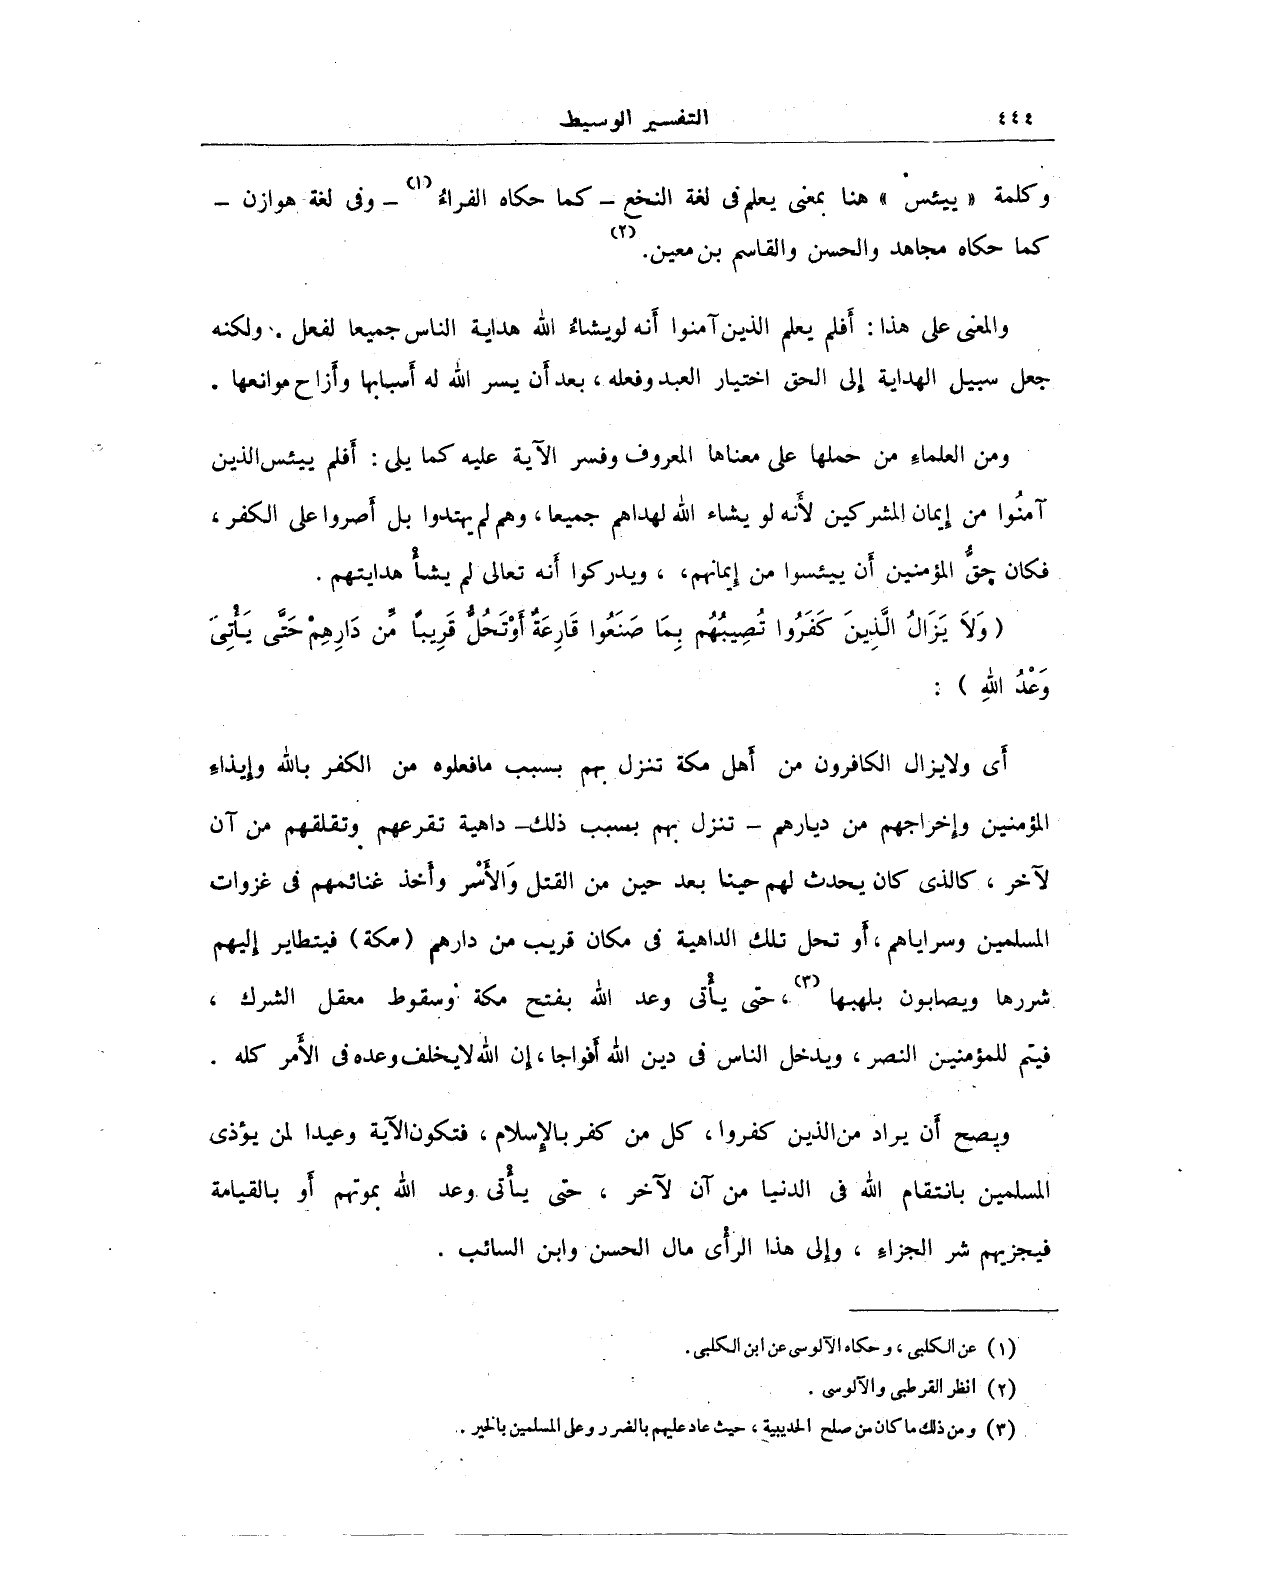 ٤٤٤ التفسير الوسيط
وكلمة « ييئس » هنا بمعنى يعلم فى لغة النخع – كما حكاه الفراءُ (١) – وفى لغة هوازن –
كما حكاه مجاهد والحسن والقاسم بن معين. (٢)
والمعنى على هذا : أَفلم يعلم الذين آمنوا أَنه لو يشاءُ الله هداية الناس جميعا لفعل . ولكنه
جعل سبيل الهداية إلى الحق اختيار العبد وفعله ، بعد أَن يسر الله له أَسبابها وأَزاح موانعها .
ومن العلماءِ من حملها على معناها المعروف وفسر الآية عليه كما يلى : أَفلم ييئس الذين
آمنُوا من إيمان المشركين لأَنه لو يشاء الله لهداهم جميعا ، وهم لم يهتدوا بل أَصروا على الكفر ،
فكان حقُّ المؤمنين أَن ييئسوا من إيمانهم، ، ويدركوا أَنه تعالى لم يشأْ هدايتهم .
( وَلَا يَزَالُ الَّذِينَ كَفَرُوا تُصِيبُهُم بِمَا صَنَعُوا قَارِعَةٌ أَوْ تَحُلُّ قَرِيباً مِّن دَارِهِمْ حَتَّى يَأْتِىَ
وَعْدُ اللهِ ) :
أَى ولايزال الكافرون من أَهل مكة تنزل بهم بسبب مافعلوه من الكفر بالله وإيذاءِ
المؤمنين وإخراجهم من ديارهم – تنزل بهم بسبب ذلك – داهية تقرعهم وتقلقهم من آن
لآخر ، كالذى كان يحدث لهم حينا بعد حين من القتل وَالأَسْر وأَخذ غنائمهم فى غزوات
المسلمين وسراياهم ، أَو تحل تلك الداهية فى مكان قريب من دارهم (مكة) فيتطاير إليهم
شررها ويصابون بلهبها (٣) ، حتى يأْتى وعد الله بفتح مكة وسقوط معقل الشرك ،
فيتم للمؤمنين النصر ، ويدخل الناس فى دين الله أَفواجا ، إن الله لا يخلف وعده فى الأَمر كله .
ويصح أَن يراد من الذين كفروا ، كل من كفر بالإِسلام ، فتكون الآية وعيدا لمن يؤذى
المسلمين بانتقام الله فى الدنيا من آن لآخر ، حتى يأْتى وعد الله بموتهم أَو بالقيامة
فيجزيهم شر الجزاءِ ، وإلى هذا الرأْى مال الحسن وابن السائب .
(١) عن الكلبى ، وحكاه الآلوسى عن ابن الكلبى .
(٢) انظر القرطبى والآلوسى .
(٣) ومن ذلك ما كان من صلح الحديبية ، حيث عاد عليهم بالضرر وعلى المسلمين بالخير .